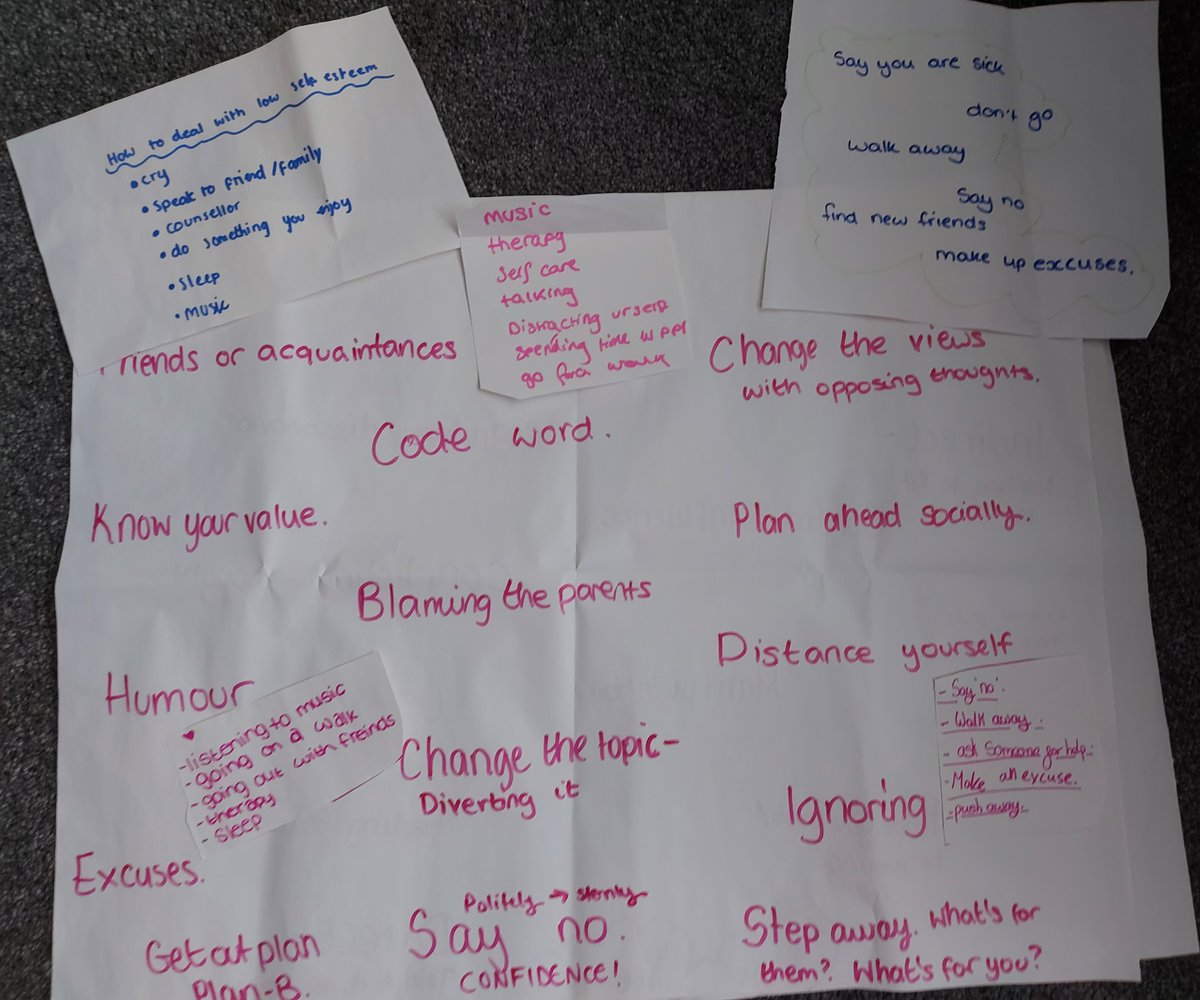 How to deal with low self esteem
• cry
• speak to friend/family
• counsellor
• do something you enjoy
• sleep
• music
music
therapy
self care
talking
Distracting urself
spending time w ppl
go for a walk
Say you are sick
don't go
walk away
Say no
find new friends
make up exccuses.
riends or acquaintances
Change the views
with opposing thoughts.
Code word.
Know your value.
Plan ahead socially.
Blaming the parents
Distance yourself
Humour
♥
-listening to music
-going on a walk
-going out with freinds
-therapy
-sleep
Change the topic-
Diverting it
Ignoring
- Say 'no'.
- Walk away.
- ask someone for help-
-Make an excuse.
-push away-
Excuses.
Get out plan
Plan-B.
Politely → sternly
Say no.
CONFIDENCE!
Step away. What's for
them? What's for you?